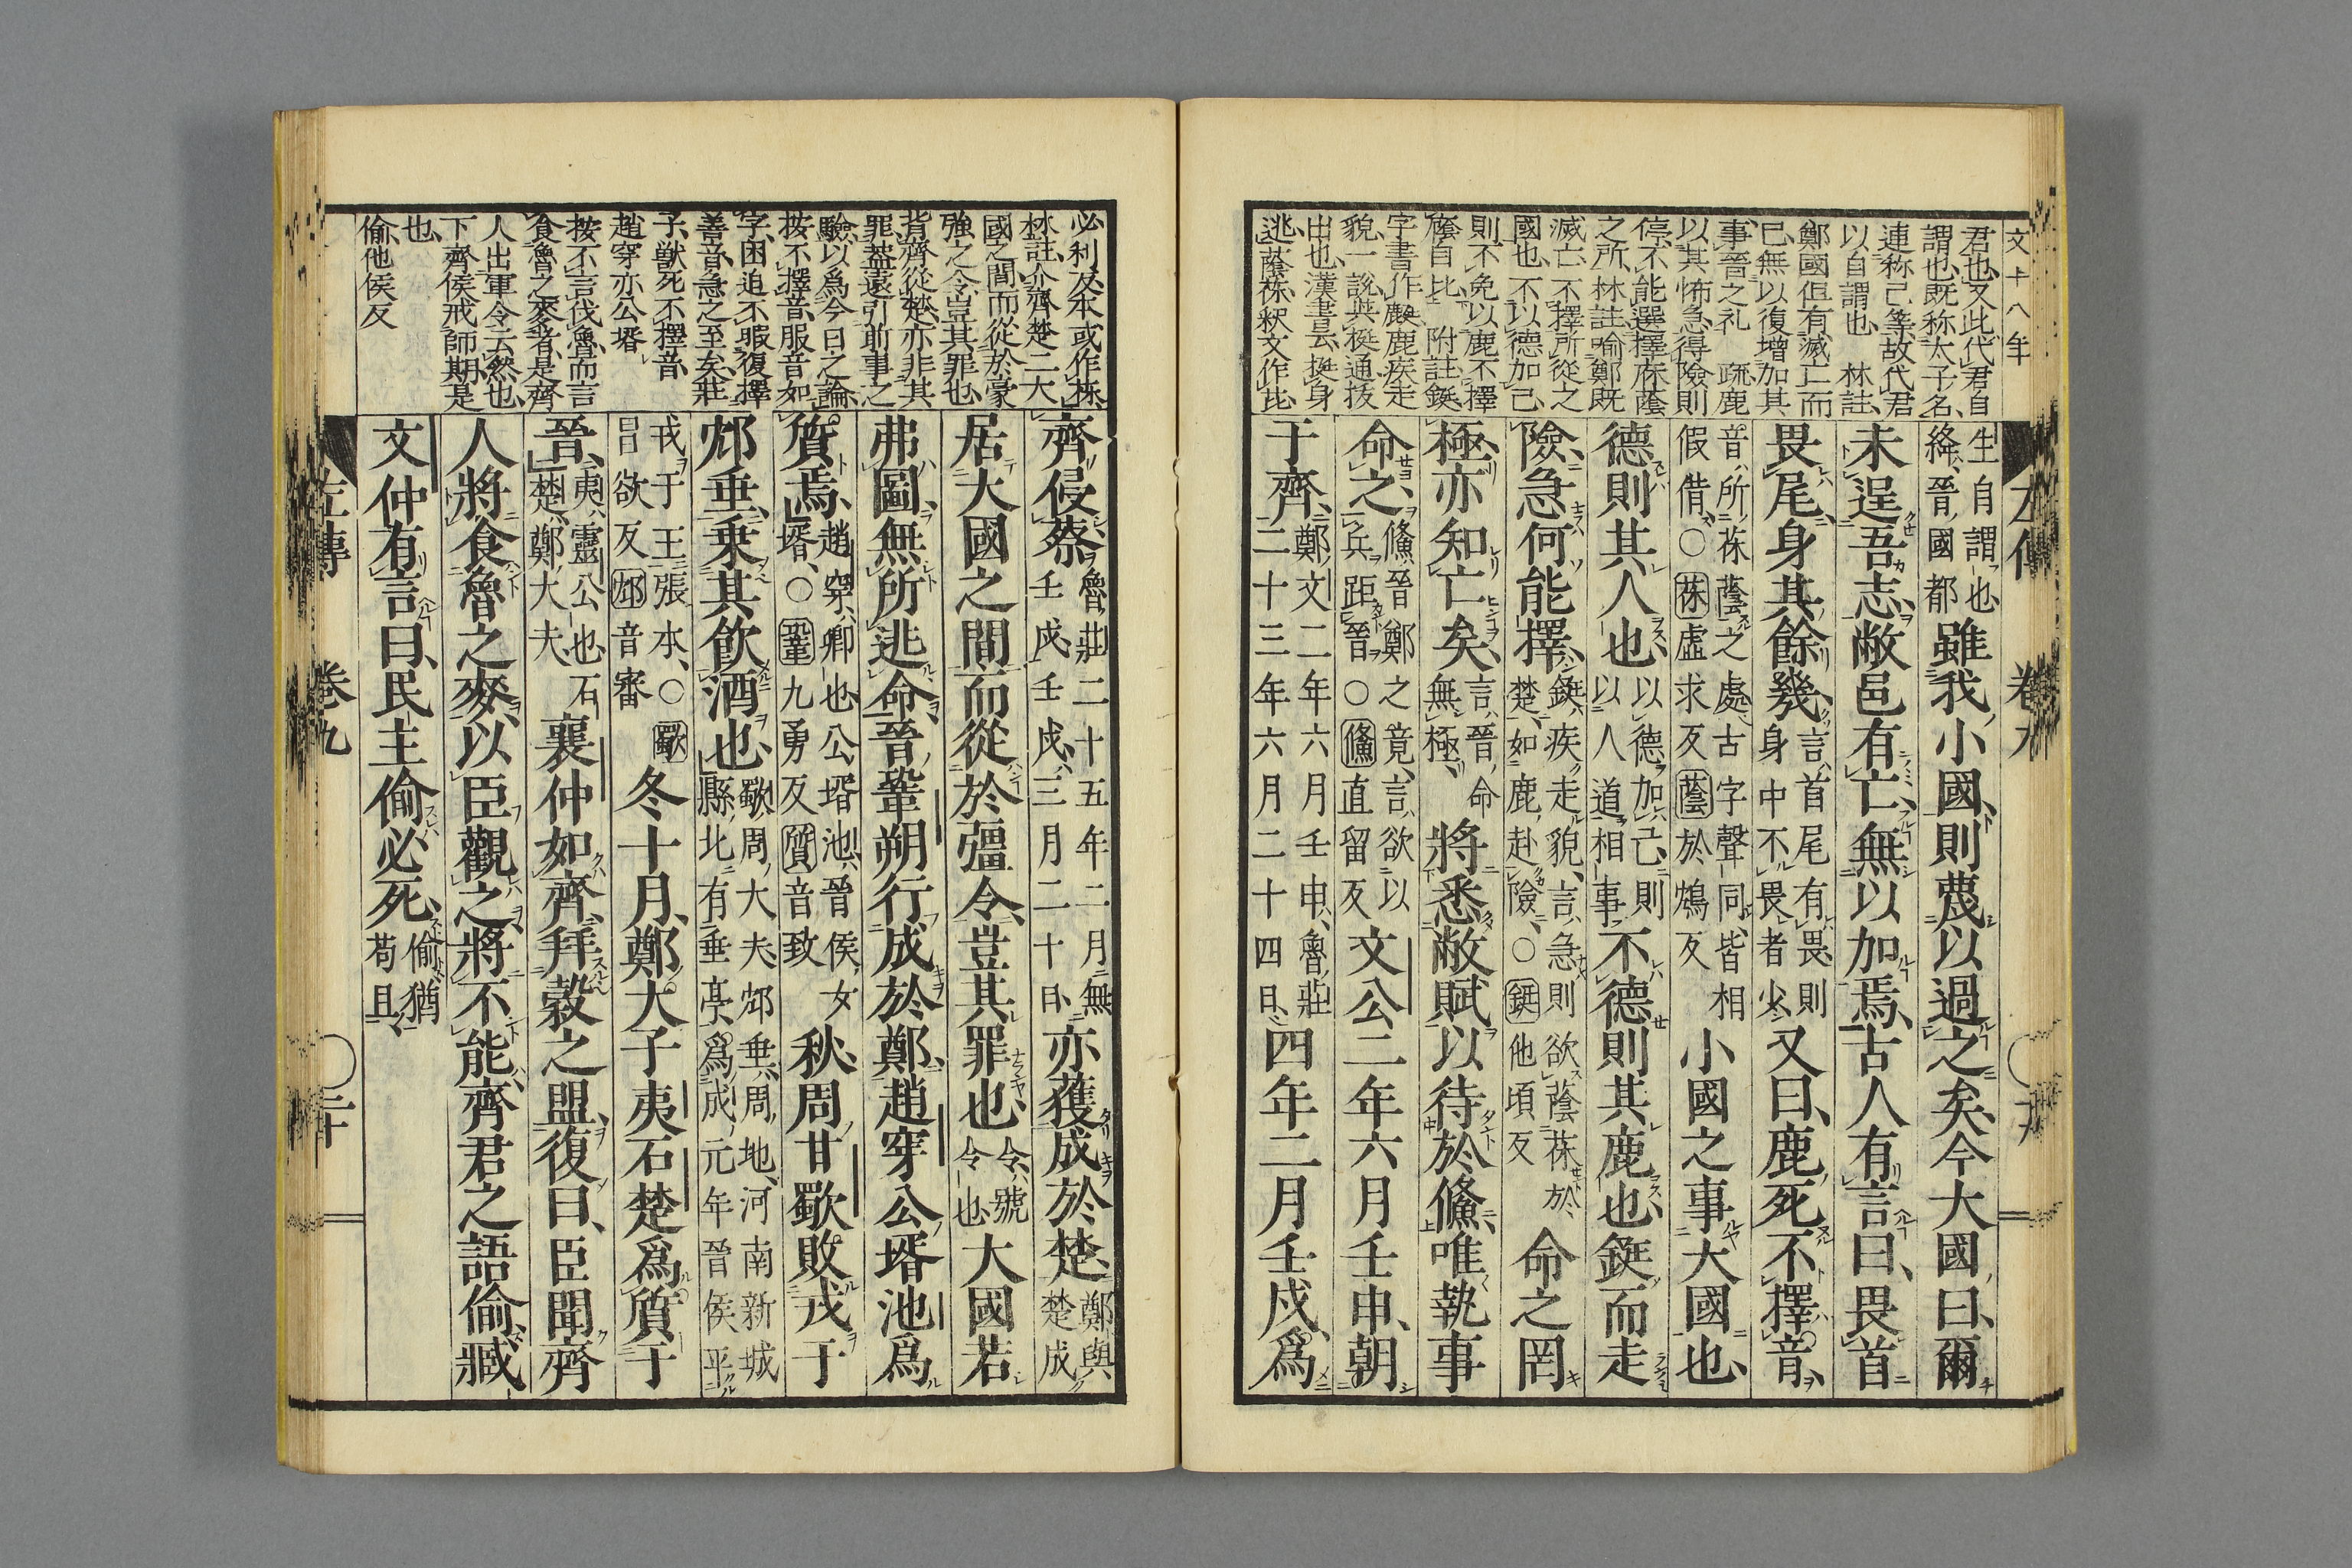 文十八年
君也又此代君自
謂也既称太子名
連称己等故代君
以自謂也 林註
鄭國但有滅亡而
已無以復增加其
事晉之礼 疏鹿
以其怖急得險則
停不能選擇庥蔭
之所 林註喻鄭既
滅亡不擇所從之
國也不以德加己
則不免以鹿不擇
庥自比 附註鋌
字書作䴺鹿疾走
貌一說與挺通拔
出也漢書云挺身
逃蔭庥釈文作比
生自謂也
絳晉國都
雖我小國則蔑以過之矣今大國曰爾
未逞吾志敝邑有亡無以加焉古人有言曰畏首
畏尾身其餘幾
言首尾有畏則
身中不畏者少
又曰鹿死不擇音
音所庥蔭之處古字聲同皆相
假借○庥虛求反蔭於鴆反
小國之事大國也
德則其人也
以德加己則
以人道相事
不德則其鹿也鋌而走
險急何能擇
鋌疾走貌言急則欲蔭庥於
楚如鹿赴險○鋌他頃反
命之罔
極亦知亡矣
言晉命
無極
將悉敝賦以待於鯈唯執事
命之
鯈晉鄭之竟言欲以
兵距晉○鯈直留反
文公二年六月壬申朝
于齊
鄭文二年六月壬申魯莊
二十三年六月二十四日
四年二月壬戌爲
必利反本或作庥
林註介齊楚二大
國之間而從於豪
強之令豈其罪也
背齊從楚亦非其
罪蓋遠引前事之
驗以爲今日之論
按不擇音服音如
字困迫不暇復擇
善音急之至矣莊
子獸死不擇音
趙穿亦公壻
按不言伐魯而言
食魯之麥者是齊
人出軍令云然也
下齊侯戒師期是
也
偷他侯反
齊侵蔡
魯莊二十五年二月無
壬戌壬戌三月二十日
亦獲成於楚
鄭與
楚成
居大國之間而從於彊令豈其罪也
令號
令也
大國若
弗圖無所逃命晉鞏朔行成於鄭趙穿公壻池爲
質焉
趙穿卿也公壻池晉侯女
壻○鞏九勇反質音致
秋周甘歜敗戎于
邥垂乘其飲酒也
歜周大夫邥垂周地河南新城
縣北有垂亭爲成元年晉侯平
戎于王張本○歜
昌欲反邥音審
冬十月鄭大子夷石楚爲質于
晉
夷靈公也石
楚鄭大夫
襄仲如齊拜穀之盟復曰臣聞齊
人將食魯之麥以臣觀之將不能齊君之語偷臧
文仲有言曰民主偷必死
偷猶
苟且
左傳 卷九 ○二十